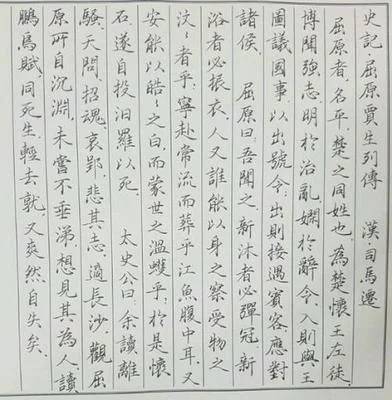 史記·屈原賈生列傳　漢司馬遷
屈原者，名平，楚之同姓也。為楚懷王左徒。
博聞強志，明於治亂，嫻於辭令。入則與王
圖議國事，以出號令；出則接遇賓客，應對
諸侯。　屈原曰：吾聞之，新沐者必彈冠，新
浴者必振衣。人又誰能以身之察察，受物之
汶汶者乎？寧赴常流而葬乎江魚腹中耳。又
安能以皓皓之白，而蒙世之溫蠖乎？於是懷
石，遂自投汨羅以死。　太史公曰：余讀離
騷、天問、招魂、哀郢，悲其志。過長沙，觀屈
原所自沉淵，未嘗不垂涕，想見其為人。讀
鵩鳥賦，同死生，輕去就，又爽然自失矣。